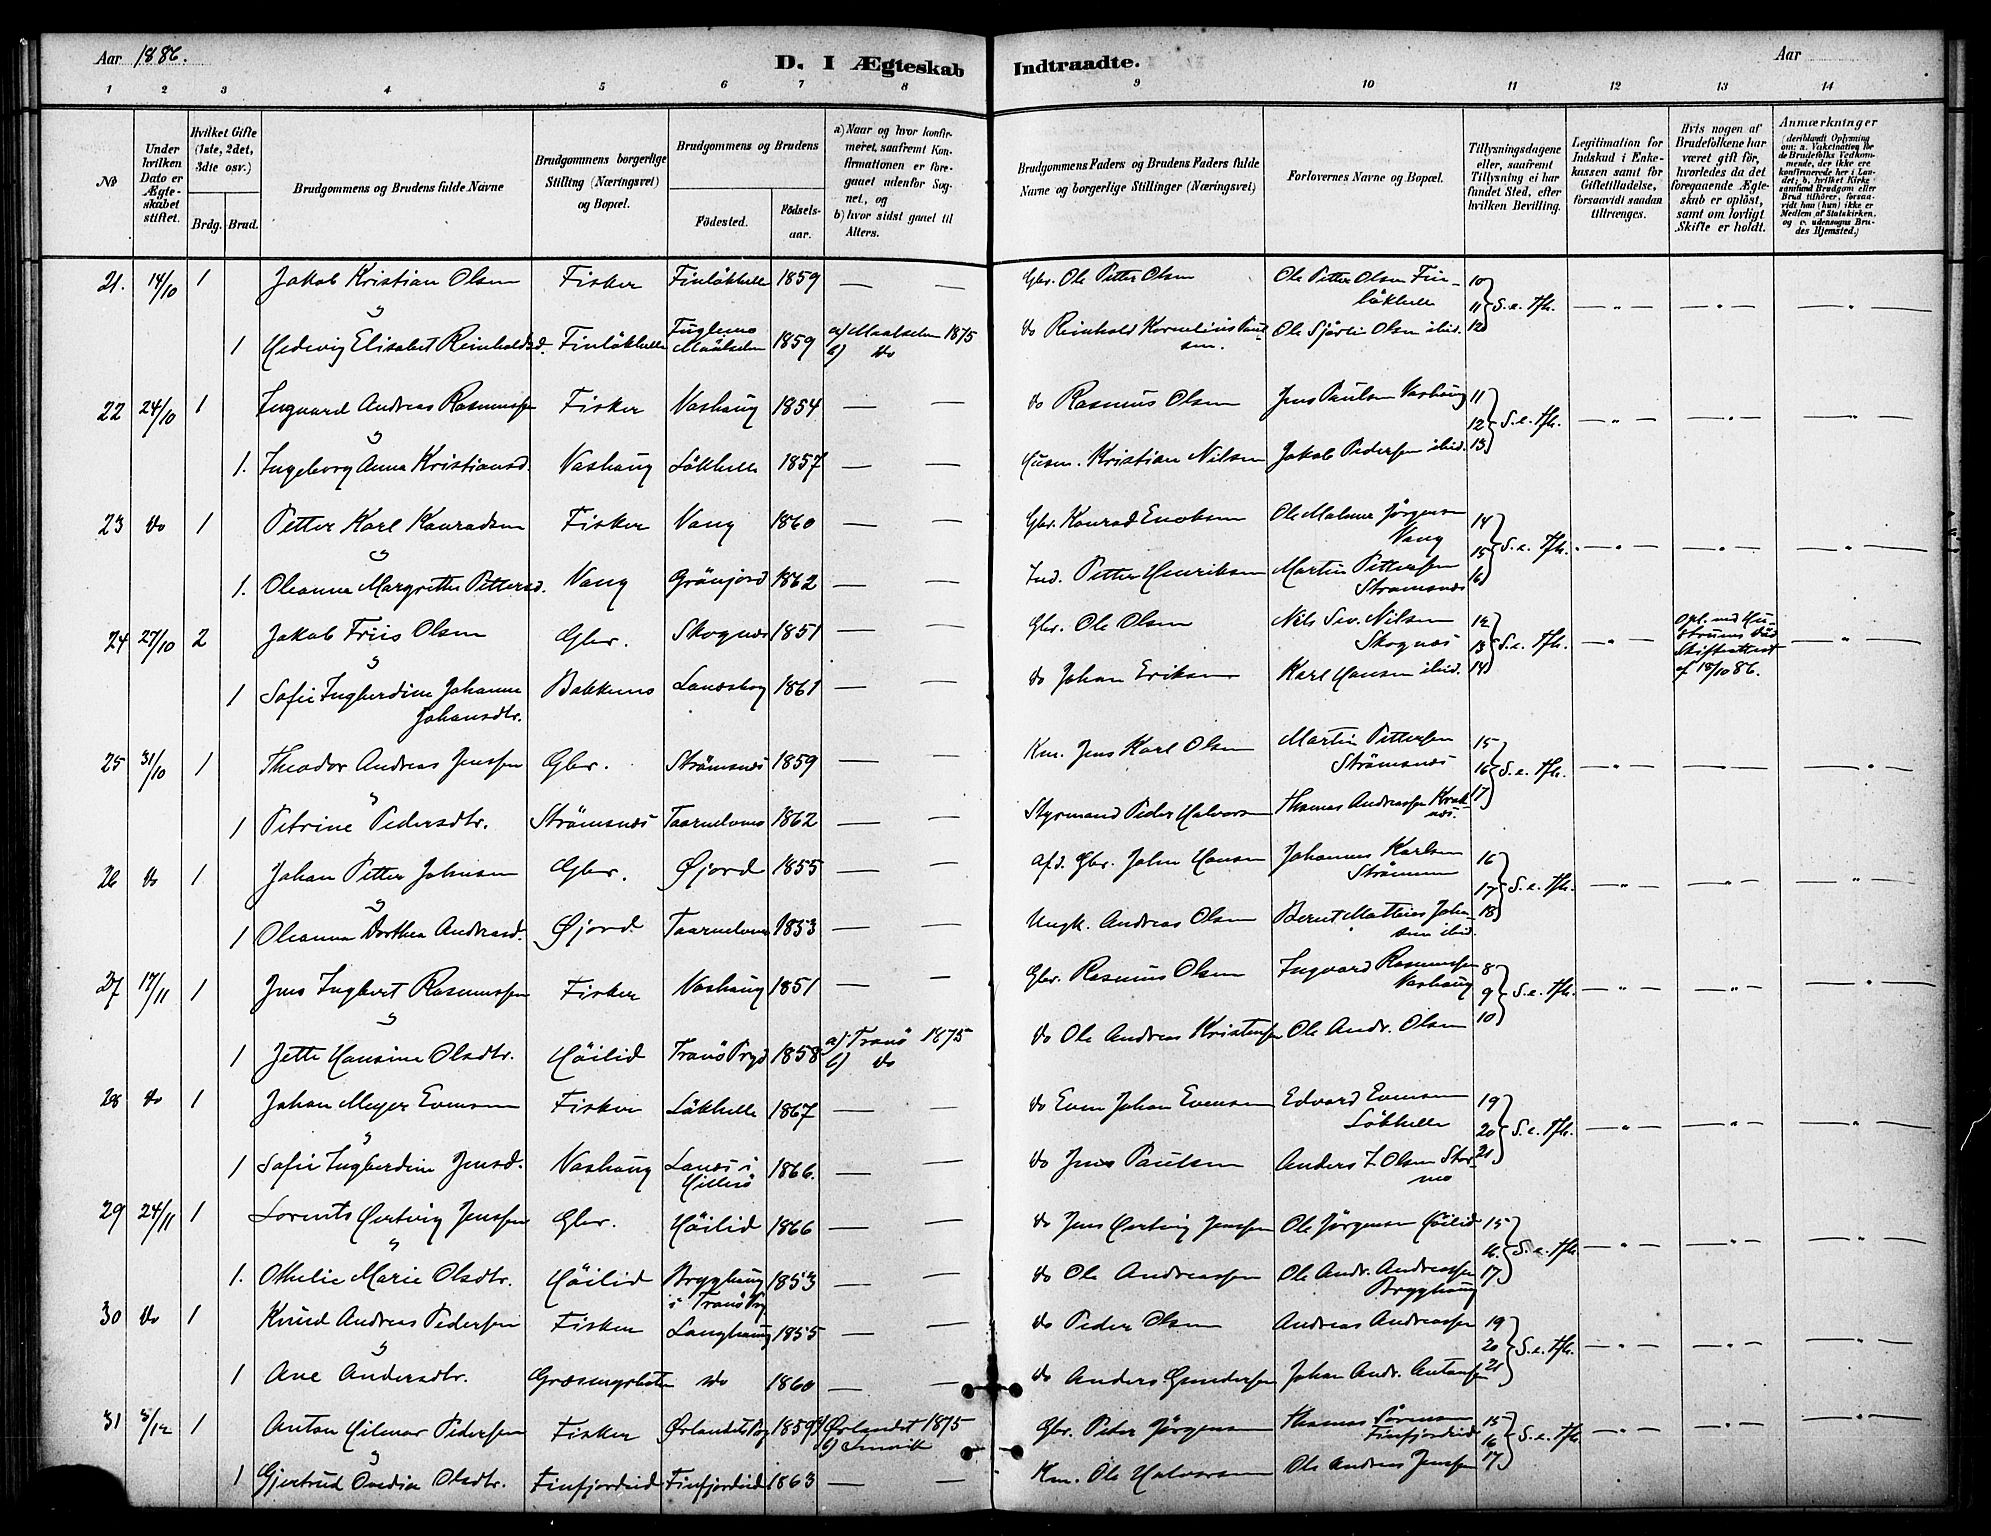 Aar 1886.
D. I Ægteskab Indtraadte.
Aar
1 2 3 4 5 6 7 8 9 10 11 12 13 14
No
Under hvilken Dato er Ægteskabet stiftet.
Hvilket Gifte (1ste, 2det, 3die osv.)
Brdg. Brud.
Brudgommens og Brudens fulde Navne
Brudgommens borgerlige Stilling (Næringsvei) og Bopæl.
Brudgommens og Brudens
Fødested.
Fødsels-aar.
a) Naar og hvor konfirmeret, saafremt Konfirmationen er foregaaet udenfor Sognet, og
b) hvor sidst gaaet til Alters.
Brudgommens Faders og Brudens Faders fulde Navne og borgerlige Stillinger (Næringsvei)
Forlovernes Navne og Bopæl.
Tillysningsdagene eller, saafremt Tillysning ei har fundet Sted, efter hvilken Bevilling.
Legitimation for Indskud i Enkekassen samt for Giftetilladelse, forsaavidt saadan tiltrænges.
Hvis nogen af Brudefolkene har været gift før, hvorledes da det foregaaende Ægteskab er opløst, samt om lovligt Skifte er holdt.
Anmærkninger
21. 14/10 1 Jakob Kristian Olsen Fisker Finlökhelle 1859 — — Gbr. Ole Petter Olsen Ole Petter Olsen Finlökhelle 10 11 12 S. e. Tfh.
1 Hedevig Elisabet Reinholdsd. Finlökhelle Fuglemo Maalselen 1859 a) Maalselen 1875 b) do do Reinhold Kornelius Paulsen. Ole Sjørlin Olsen ibid.
22 24/10 1 Ingvard Andreas Rasmussen Fisker Vashaug 1854 — — do Rasmus Olsen Jens Paulsen Vashaug 11 12 13 S. e. Tfh.
1. Ingeborg Anna Kristiansd. Vashaug Lökhelle 1857 — — Husm. Kristian Nilsen Jakob Pedersen ibid.
23 do 1 Petter Karl Konradsen Fisker Vang 1860 — — Gbr. Konrad Enoksen Ole Malmer Jørgensen Vang 14 15 16 S. e. Tfh.
1. Oleanna Margrethe Pettersd. Vang Grönjord 1862 — — Ind. Petter Henriksen Martin Pettersen Strømsnæs
24 27/10 2 Jakob Friis Olsen Gbr. Skognæs 1851 — — Gbr. Ole Olsen Nils Siv. Nilsen Skognæs 12 13 14 S. e. Tfh. Opl. ved Hustruens Död Skifteattest af 18/10 86.
1 Sofie Ingberdine Johanna Johansdtr. Bakkemo Landskog 1861 — — do Johan Eriksen Karl Hansen ibid.
25 31/10 1 Theodor Andreas Jenssen Gbr. Strömsnæs 1859 — — Km. Jens Karl Olsen Martin Pettersen Strömsnæs 15 16 17 S. e. Tfh.
1 Petrine Pedersdtr. Strömsnæs Taarnelvmo 1862 — — Styrmand Peder Halvorsen Thomas Andreassen
26 do 1 Johan Petter Johnsen Gbr. Øjord 1855 — — Afd. Gbr. John Hansen Johannes Karlsen Strömmen 16 17 18 S. e. Tfh.
1 Oleanna Dorthea Andreasd. Øjord Taarnelvmo 1853 — — Ungk. Andreas Olsen Bernt Mathias Johansen ibid.
27 17/11 1 Jens Ingbert Rasmussen Fisker Vashaug 1851 — — Gbr. Rasmus Olsen Ingvard Rasmussen Vashaug 8 9 10 S. e. Tfh.
1 Jette Hansine Olsdtr. Höilid Tranö Prgd 1858 a) Tranö 1875 b) do do Ole Andreas Kristensen Ole Andr. Olsen
28 do 1 Johan Meyer Evensen Fisker Lökhelle 1867 — — do Even Johan Evensen Edvard Evensen Lökhelle 19 20 21 S. e. Tfh.
1 Sofie Ingberdine Jensd. Vashaug Lanæs i Hillesö 1866. — — do Jens Paulsen Anders Z. Olsen Stormo
29 24/11 1 Lorents Hertvig Jenssen Gbr. Höilid 1866 — — do Jens Hertvig Jenssen Ole Jørgensen Höilid 15 16. 17 S. e. Tfh.
1. Othelie Marie Olsdtr. Höilid Brygghaug i Tranö Prg 1853 — — do Ole Andreassen Ole Andr. Andreassen Brygghaug
30 do 1 Knud Andreas Pedersen Fisker Langhaug 1855 — — do Peder Olsen Andreas Andreassen 19 20 21 S. e. Tfh.
1 Ane Andersdtr. Græsmyrbotn do 1860 — — do Anders Gundersen Johan Andr. Antonsen
31 3/12 1 Anton Hilmar Pedersen Fisker Ørlandets Prg 1859 a) Ørlandet 1875 b) Lenvik Gbr. Peder Jørgensen Thomas Sörensen Finfjordeid 15 16 17 S. e. Tfh.
1 Gjertrud Ovedia Olsdtr. Finfjordeid Finfjordeid 1863 — — Km. Ole Halvorsen Ole Andreas Jenssen